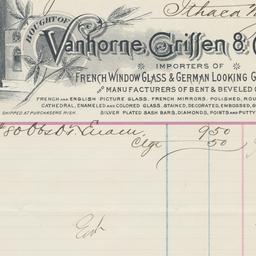 Ithaca
BOUGHT OF
Vanhorne, Griffen &
IMPORTERS OF
FRENCH WINDOW GLASS & GERMAN LOOKING G
AND MANUFACTURERS OF BENT & BEVELED
FRENCH AND ENGLISH PICTURE GLASS, FRENCH MIRRORS, POLISHED, ROU
CATHEDRAL, ENAMELED AND COLORED GLASS, STAINED, DECORATED, EMBOSSED, G
SHIPPED AT PURCHASERS RISK. SILVER PLATED SASH BARS, DIAMONDS, POINTS AND PUTTY
9 50
Ctge 50